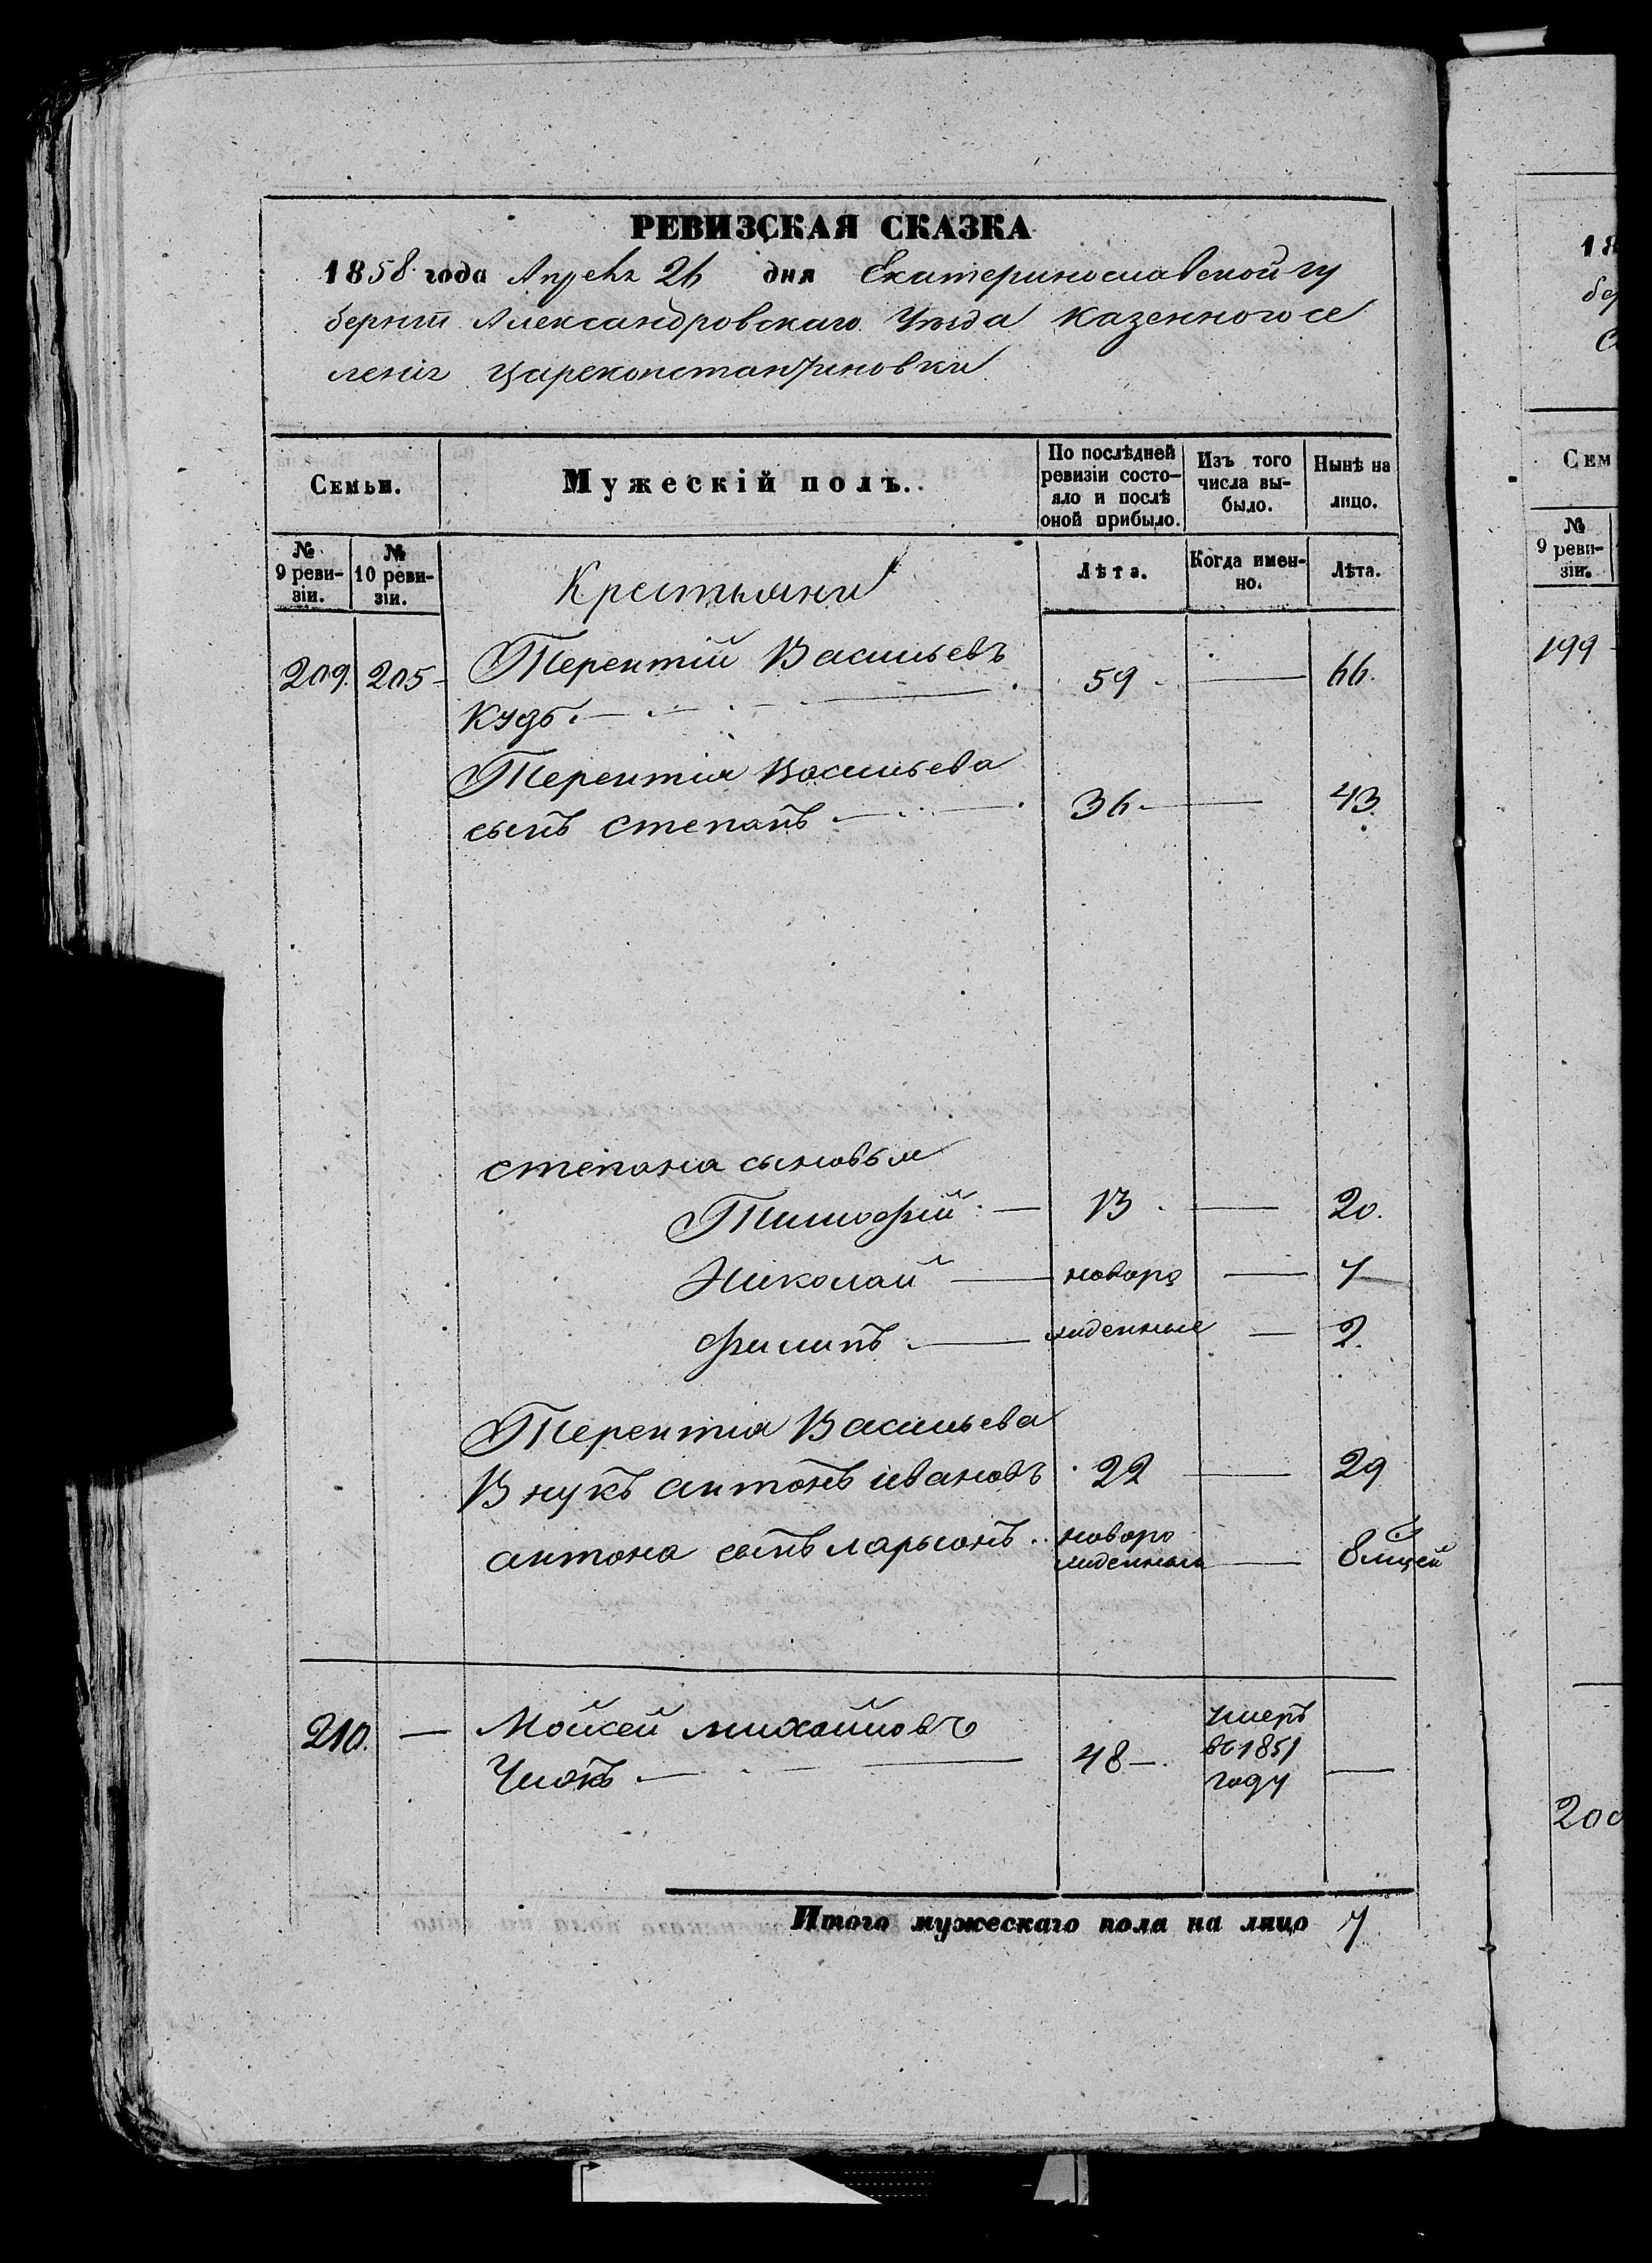 РЕВИЗСКАЯ СКАЗКА
1858 года Апреля 26 дня Екатеринославской гу
берніи Александровскаго Уѣзда казенного се
ленія Цареконстантиновки
Семьи.
Мужескій полъ.
По послѣдней ревизіи состо-
яло и послѣ оной прибыло.
Изъ того числа вы-
было.
Нынѣ на лицо.
№ 9 реви-
зіи.
№ 10 реви-
зіи.
Крестьяни
Лѣта.
Когда имен-
но.
Лѣта.
209. 205 Терентій Васильевъ 59 66.
Кудь.
Терентія Васильева
сынъ степанъ 36 43.
степана сыновья
Тимофій 13 20.
Николай новоро 7
филипъ жденные 2.
Терентія Васильева
Внукъ антонъ ивановъ 22 29
антона сынъ ларіонъ новоро
жденный 8 мцей
210. Мойсей михайловъ умеръ
Чиокъ 48 въ 1851
году
Итого мужескаго пола на лицо 7
18
бер
Сем
№ 9 реви-
зіи.
199
200